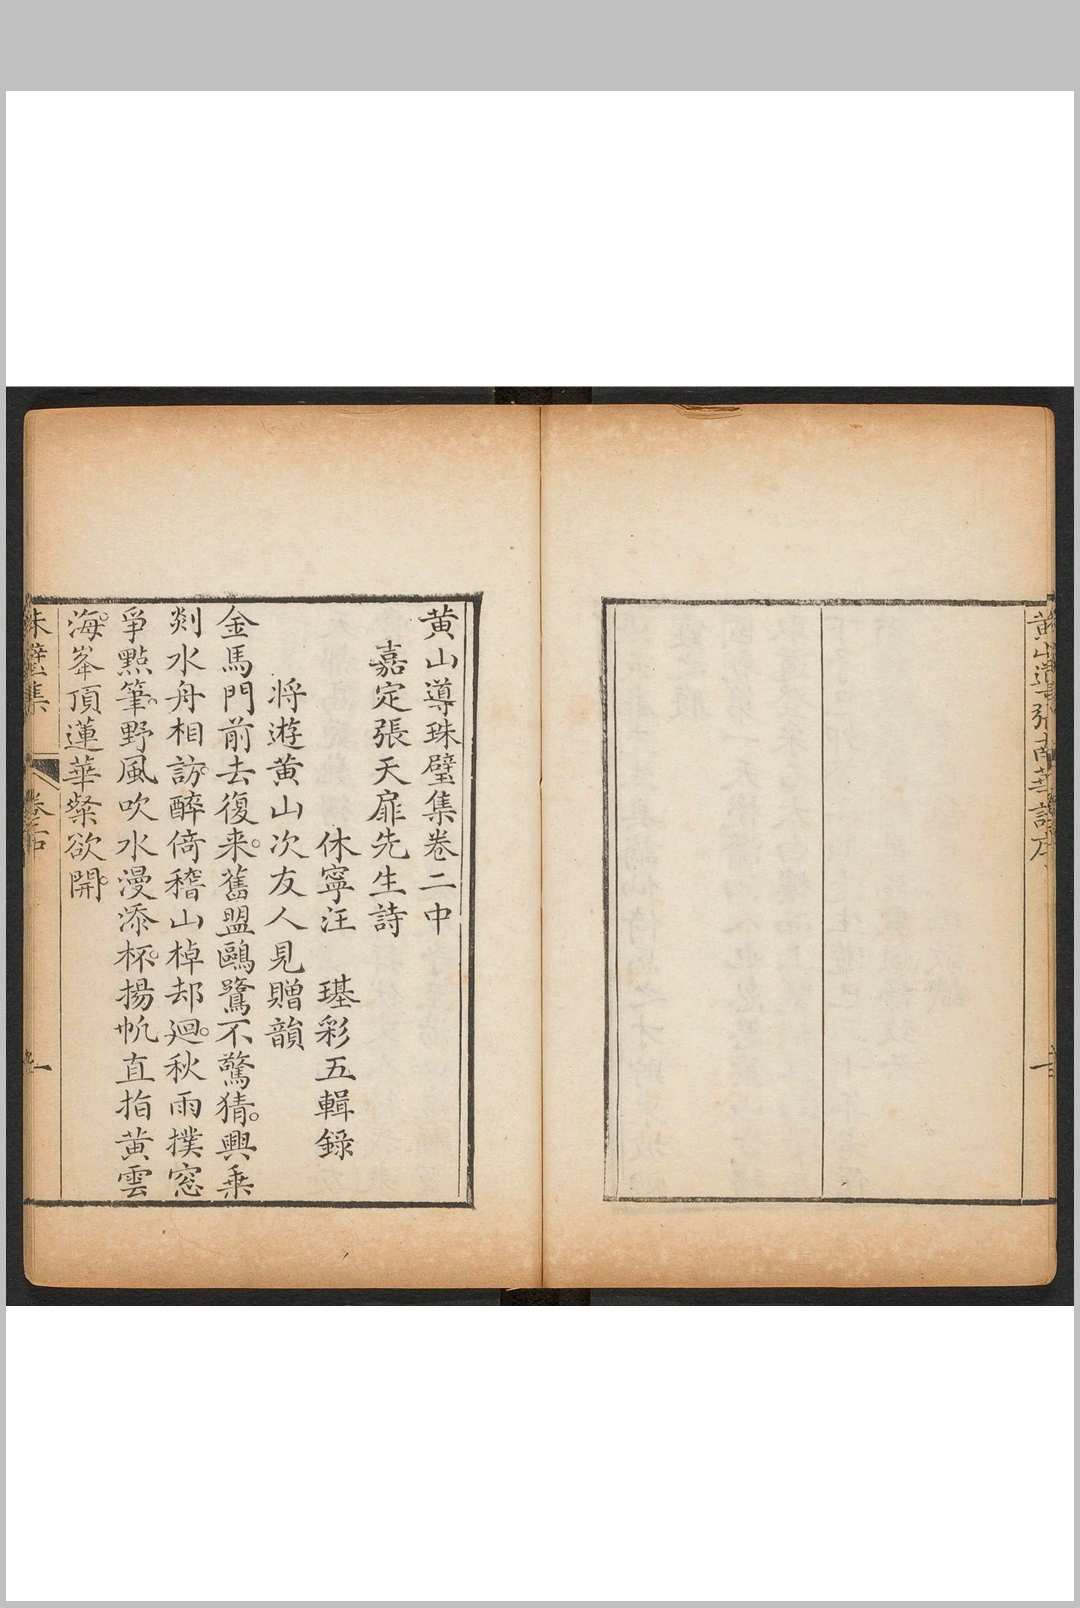 黃山導珠璧集卷二中
嘉定張天扉先生詩
休寧汪 璂彩五輯錄
將遊黃山次友人見贈韻
金馬門前去復来。舊盟鷗鷺不驚猜。興乗
剡水舟相訪。醉倚稽山棹却廻。秋雨撲窓
爭㸃筆。野風吹水漫添杯。揚帆直指黃雲
海。峯頂蓮華粲欲開。
珠璧集
卷二中
一